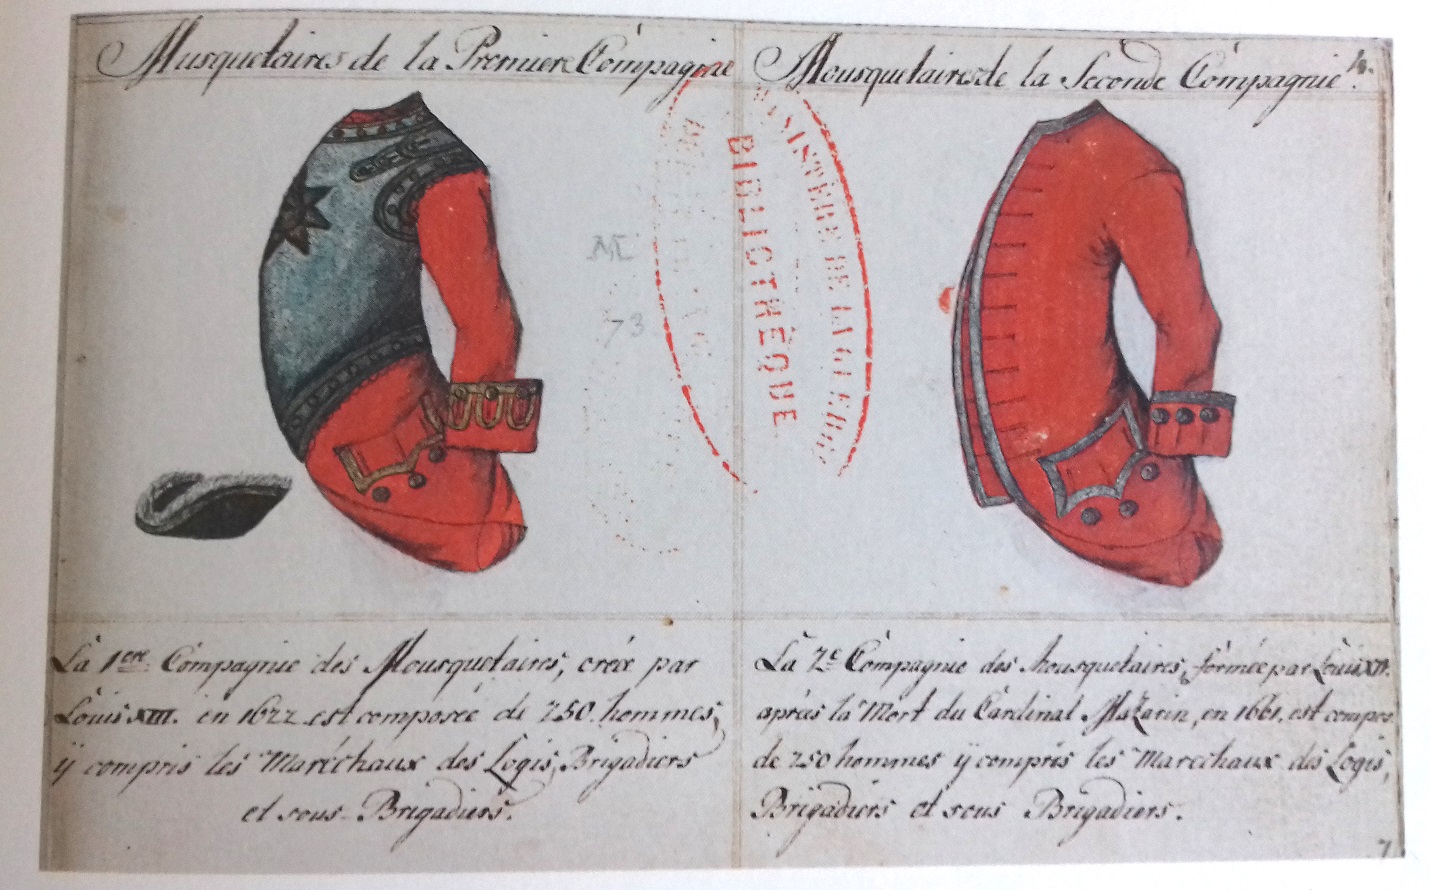 Musquetaires de la Premiere Compagnie
Mousquetaires de la Seconde Compagnie.
MINISTÈRE DE LA GUERRE
BIBLIOTHÈQUE
73
La 1ere. Compagnie des Mousquetaires, créée par
Louis XIII. en 1622 est composée de 250. hommes,
ÿ compris les Maréchaux des Logis, Brigadiers
et sous-Brigadiers.
La 2e Compagnie des Mousquetaires, formée par Louis XIV.
après la Mort du Cardinal Mazarin, en 1661. est compos.
de 250 hommes ÿ compris les Marechaux des Logis,
Brigadiers et sous Brigadiers.
7